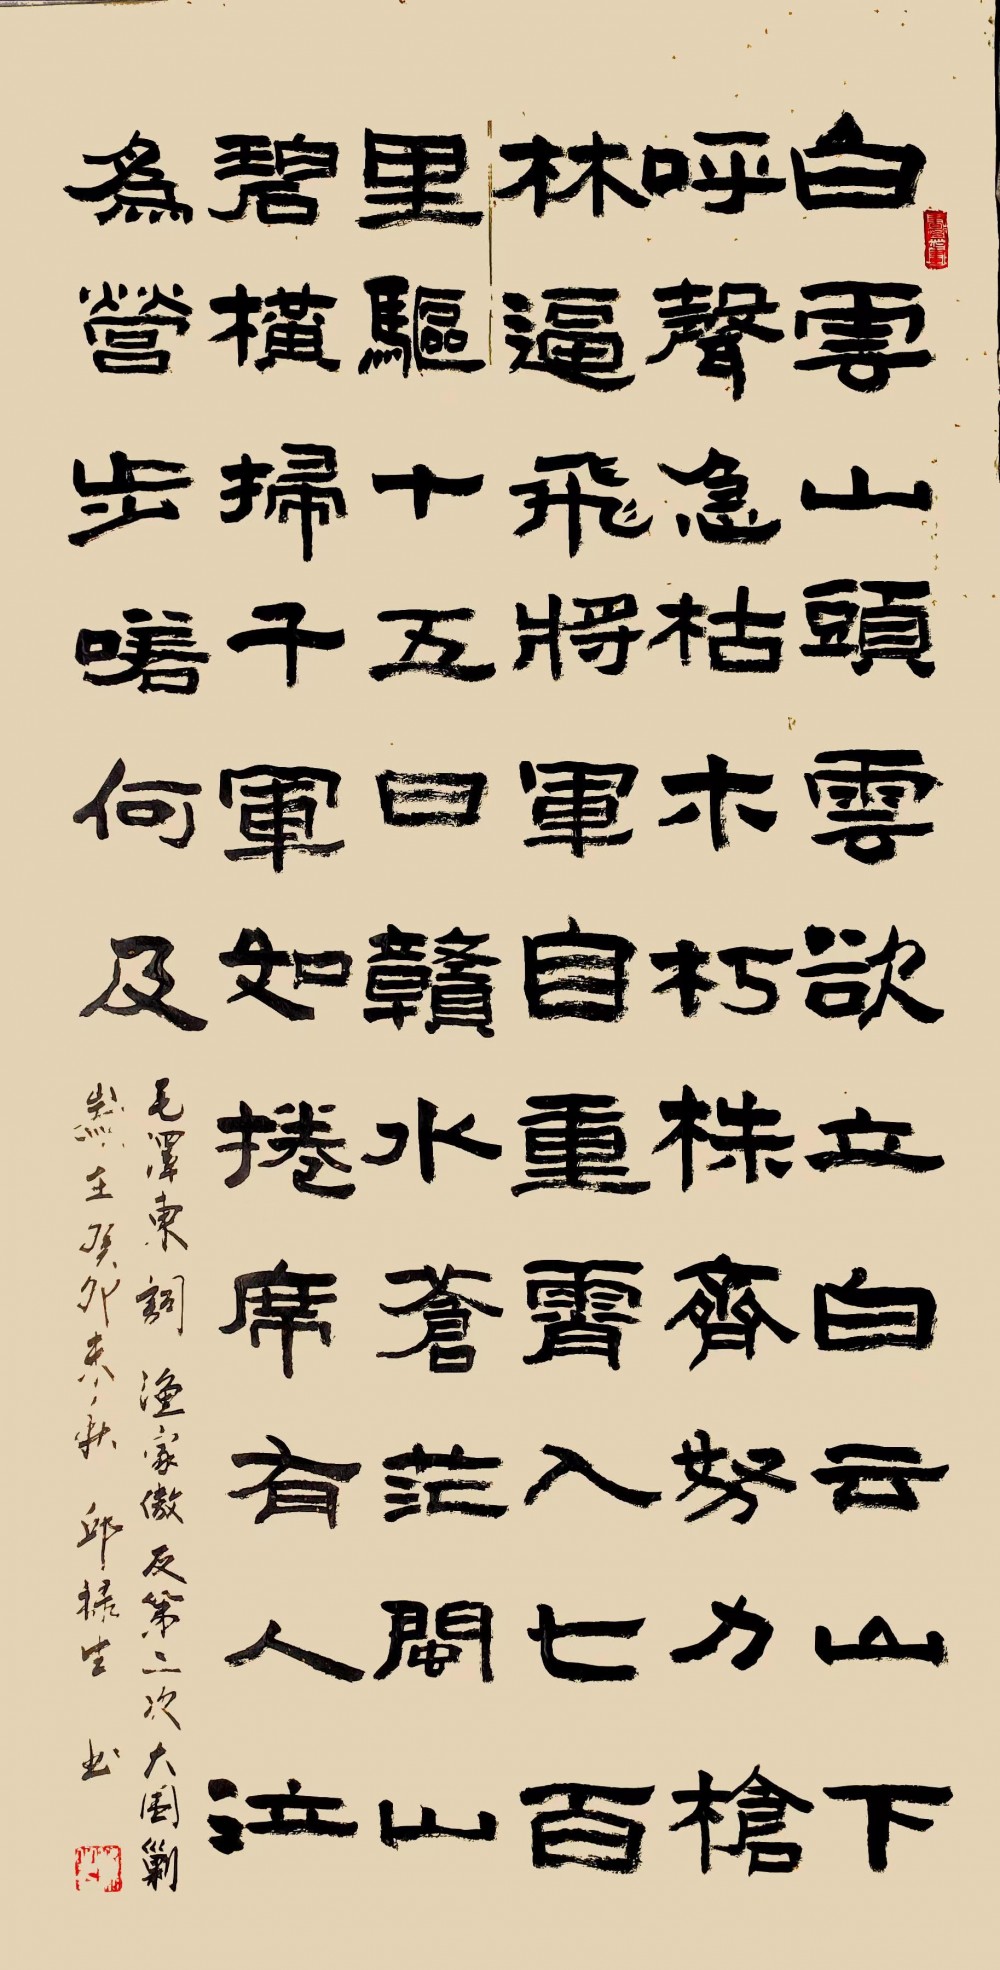 白雲山頭雲欲立白云山下
呼聲急枯木朽株齊努力槍
林逼飛將軍自重霄入七百
里驅十五日贛水蒼茫閩山
碧橫掃千軍如捲席有人泣
為營步嗟何及
毛澤東詞 漁家傲 反第二次大圍剿
癸卯末秋 邱祿生 书